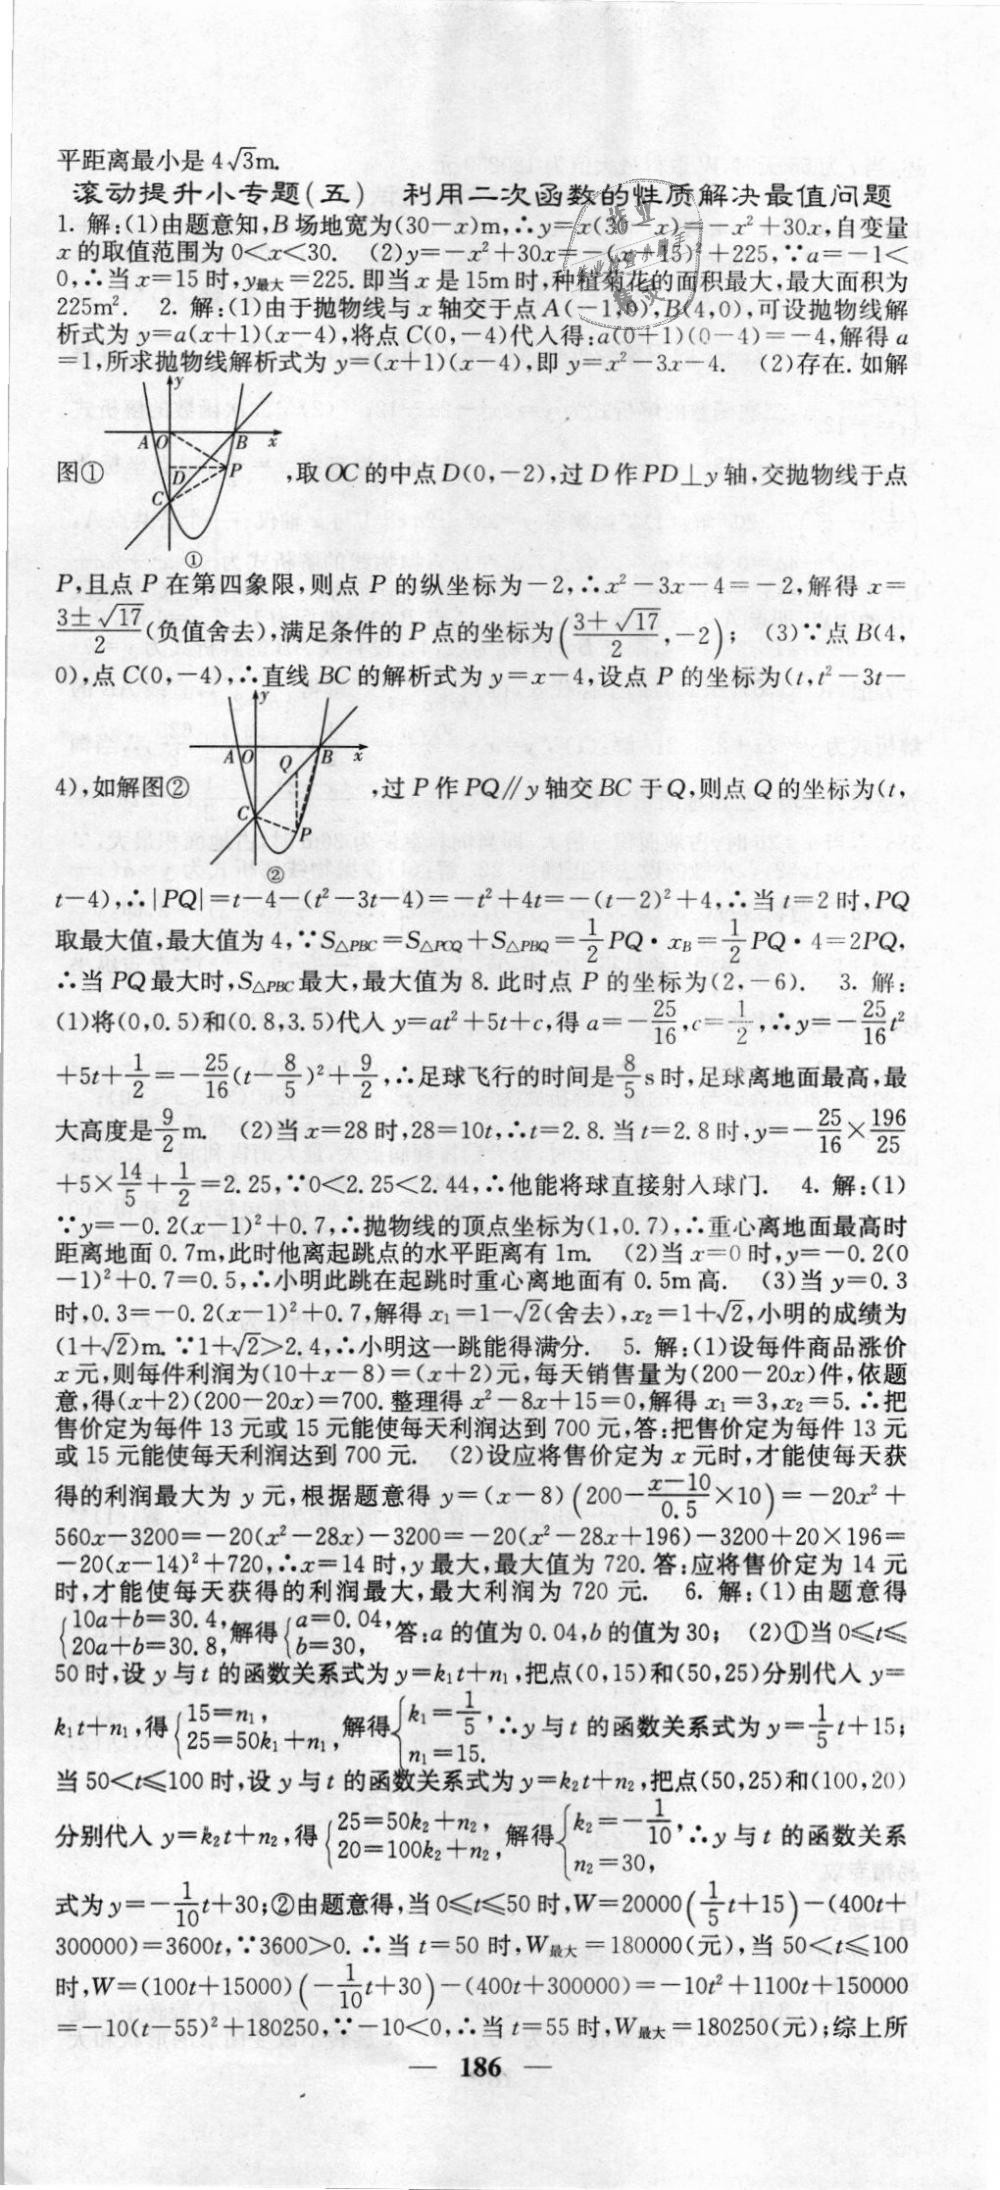 平距离最小是 4√3m.
滚动提升小专题(五)　利用二次函数的性质解决最值问题
1. 解:(1)由题意知,B 场地宽为(30−x)m,∴y=x(30−x)=−x²+30x,自变量
x 的取值范围为 0<x<30.　(2)y=−x²+30x=−(x−15)²+225,∵a=−1<
0,∴当 x=15 时,y最大=225. 即当 x 是 15m 时,种植菊花的面积最大,最大面积为
225m².　2. 解:(1)由于抛物线与 x 轴交于点 A(−1,0),B(4,0),可设抛物线解
析式为 y=a(x+1)(x−4),将点 C(0,−4)代入得:a(0+1)(0−4)=−4,解得 a
=1,所求抛物线解析式为 y=(x+1)(x−4),即 y=x²−3x−4.　(2)存在. 如解
图①
y
A O B x
D P
C
①
,取 OC 的中点 D(0,−2),过 D 作 PD⊥y 轴,交抛物线于点
P,且点 P 在第四象限,则点 P 的纵坐标为−2,∴x²−3x−4=−2,解得 x=
(3±√17)/2(负值舍去),满足条件的 P 点的坐标为((3+√17)/2,−2);　(3)∵点 B(4,
0),点 C(0,−4),∴直线 BC 的解析式为 y=x−4,设点 P 的坐标为(t,t²−3t−
4),如解图②
y
A O Q B x
C
P
②
,过 P 作 PQ∥y 轴交 BC 于 Q,则点 Q 的坐标为(t,
t−4),∴|PQ|=t−4−(t²−3t−4)=−t²+4t=−(t−2)²+4,∴当 t=2 时,PQ
取最大值,最大值为 4,∵S△PBC=S△PCQ+S△PBQ=1/2 PQ·xB=1/2 PQ·4=2PQ,
∴当 PQ 最大时,S△PBC最大,最大值为 8. 此时点 P 的坐标为(2,−6).　3. 解:
(1)将(0,0.5)和(0.8,3.5)代入 y=at²+5t+c,得 a=−25/16,c=1/2,∴y=−25/16 t²
+5t+1/2=−25/16(t−8/5)²+9/2,∴足球飞行的时间是8/5 s时,足球离地面最高,最
大高度是9/2 m.　(2)当 x=28 时,28=10t,∴t=2.8. 当 t=2.8 时,y=−25/16×196/25
+5×14/5+1/2=2.25,∵0<2.25<2.44,∴他能将球直接射入球门.　4. 解:(1)
∵y=−0.2(x−1)²+0.7,∴抛物线的顶点坐标为(1,0.7),∴重心离地面最高时
距离地面 0.7m,此时他离起跳点的水平距离有 1m.　(2)当 x=0 时,y=−0.2(0
−1)²+0.7=0.5,∴小明此跳在起跳时重心离地面有 0.5m 高.　(3)当 y=0.3
时,0.3=−0.2(x−1)²+0.7,解得 x₁=1−√2(舍去),x₂=1+√2,小明的成绩为
(1+√2)m. ∵1+√2>2.4,∴小明这一跳能得满分.　5. 解:(1)设每件商品涨价
x 元,则每件利润为(10+x−8)=(x+2)元,每天销售量为(200−20x)件,依题
意,得(x+2)(200−20x)=700. 整理得 x²−8x+15=0,解得 x₁=3,x₂=5. ∴把
售价定为每件 13 元或 15 元能使每天利润达到 700 元,答:把售价定为每件 13 元
或 15 元能使每天利润达到 700 元.　(2)设应将售价定为 x 元时,才能使每天获
得的利润最大为 y 元,根据题意得 y=(x−8)(200−(x−10)/0.5×10)=−20x²+
560x−3200=−20(x²−28x)−3200=−20(x²−28x+196)−3200+20×196=
−20(x−14)²+720,∴x=14 时,y 最大,最大值为 720. 答:应将售价定为 14 元
时,才能使每天获得的利润最大,最大利润为 720 元.　6. 解:(1)由题意得
{10a+b=30.4, 20a+b=30.8,解得{a=0.04, b=30,答:a 的值为 0.04,b 的值为 30;　(2)①当 0≤t≤
50 时,设 y 与 t 的函数关系式为 y=k₁t+n₁,把点(0,15)和(50,25)分别代入 y=
k₁t+n₁,得{15=n₁, 25=50k₁+n₁,解得{k₁=1/5, n₁=15.∴y 与 t 的函数关系式为 y=1/5 t+15;
当 50<t≤100 时,设 y 与 t 的函数关系式为 y=k₂t+n₂,把点(50,25)和(100,20)
分别代入 y=k₂t+n₂,得{25=50k₂+n₂, 20=100k₂+n₂,解得{k₂=−1/10, n₂=30,∴y 与 t 的函数关系
式为 y=−1/10 t+30;②由题意得,当 0≤t≤50 时,W=20000(1/5 t+15)−(400t+
300000)=3600t,∵3600>0. ∴当 t=50 时,W最大=180000(元),当 50<t≤100
时,W=(100t+15000)(−1/10 t+30)−(400t+300000)=−10t²+1100t+150000
=−10(t−55)²+180250,∵−10<0,∴当 t=55 时,W最大=180250(元);综上所
— 186 —